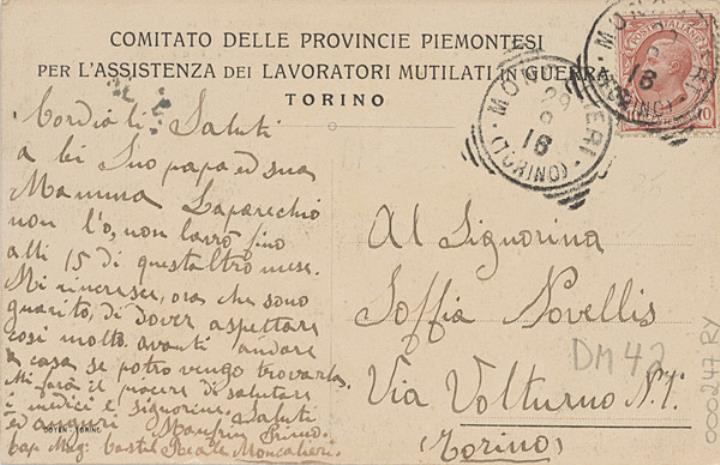 COMITATO DELLE PROVINCIE PIEMONTESI
PER L'ASSISTENZA DEI LAVORATORI MUTILATI IN GUERRA
TORINO
POSTE ITALIANE
10
MONCALIERI
29
9
18
(TORINO)
Cordiali Saluti
a lei Suo papa ed sua
Mamma Laparechio
non l'o, non lavrò fino
alli 15 di questaltro mese.
Mi rincresce, ora che sono
guarito, di dover aspettare
cosi molto avanti andare
a casa se potrò vengo trovarla.
Mi farà il piacere di salutare
i medici e signorine. Saluti
ed auguri Primo.
Cap. Mag: Castel Reale Moncalieri.
DOYEN - TORINO
Al Signorina
Soffia Novellis
Via Volturno N. 1.
(Torino)
DM 42
000247 RY